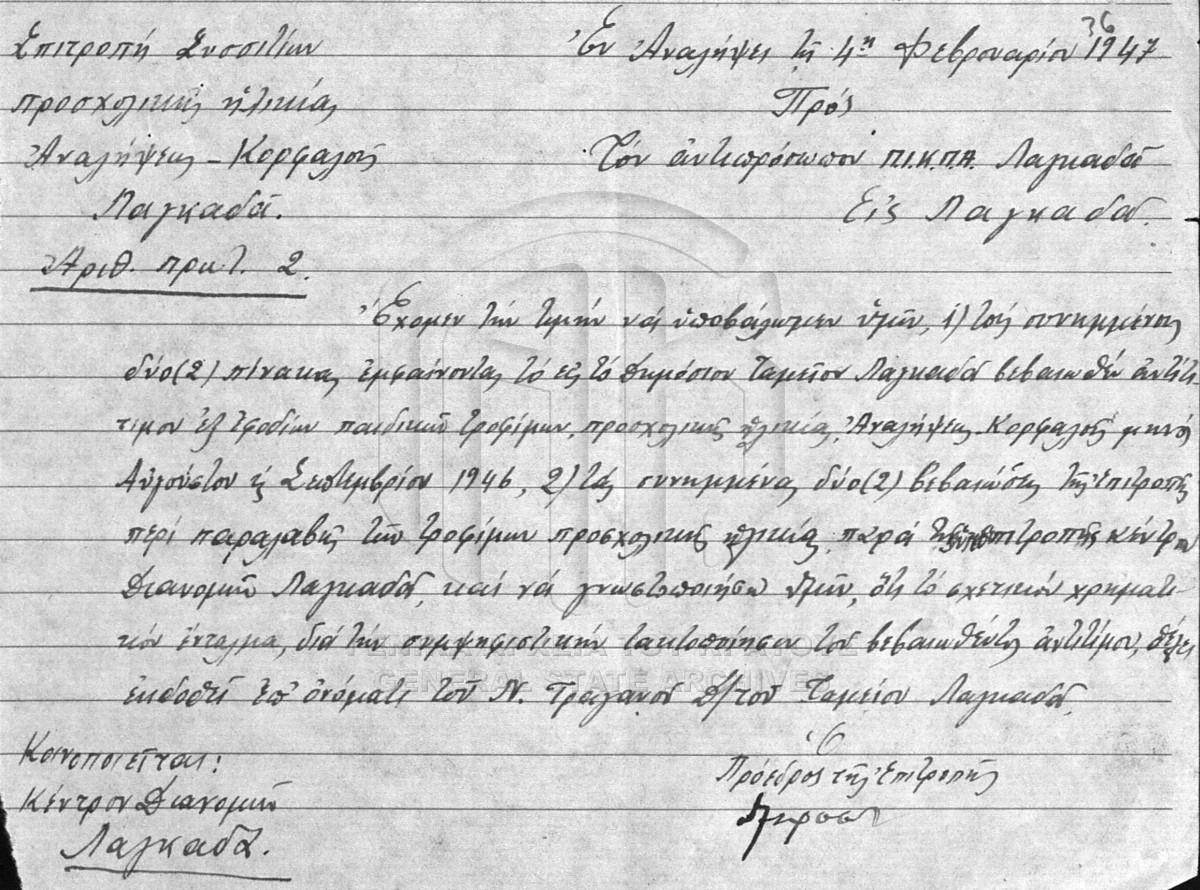 Ἐπιτροπή Συσσιτίων
προσχολικῆς ἡλικίας
Ἀναλήψεως – Κορφαλοῦς
Λαγκαδᾶ.
Ἀριθ. πρωτ. 2.
Ἐν Ἀναλήψει τῇ 4ῃ Φεβρουαρίου 1947
36
Πρός
Τόν ἀντιπρόσωπον Π.Ι.Κ.Π.Α. Λαγκαδᾶ
Εἰς Λαγκαδᾶ.
Ἔχομεν τήν τιμήν νά ὑποβάλωμεν ὑμῖν, 1) τούς συνημμένους
δύο (2) πίνακας ἐμφαίνοντας τό εἰς τό Δημόσιον Ταμεῖον Λαγκαδᾶ βεβαιωθέν ἀντί-
τιμον ἐξ ἐφοδίων παιδικῶν τροφίμων, προσχολικῆς ἡλικίας, Ἀναλήψεως Κορφαλοῦς μηνός
Αὐγούστου ϗ Σεπτεμβρίου 1946, 2) τάς συνημμένας δύο (2) βεβαιώσεις τῆς Ἐπιτροπῆς
περί παραλαβῆς τῶν τροφίμων προσχολικῆς ἡλικίας, παρά τῆς ἐπιτροπῆς κέντρου
Διανομῶν Λαγκαδᾶ, καί νά γνωστοποιήσω ὑμῖν, ὅτι τό σχετικόν χρηματι-
κόν ἔνταλμα, διά τήν συμψηφιστικήν τακτοποίησιν τοῦ βεβαιωθέντος ἀντιτίμου, θέλει
ἐκδοθεῖ ἐπ' ὀνόματι τοῦ Ν. Τραγανοῦ Δ/τοῦ Ταμείου Λαγκαδᾶ.
Κοινοποιεῖται:
Κέντρον Διανομῶν
Λαγκαδᾶ.
Ὁ
Πρόεδρος τῆς Ἐπιτροπῆς
GENERAL STATE ARCHIVES